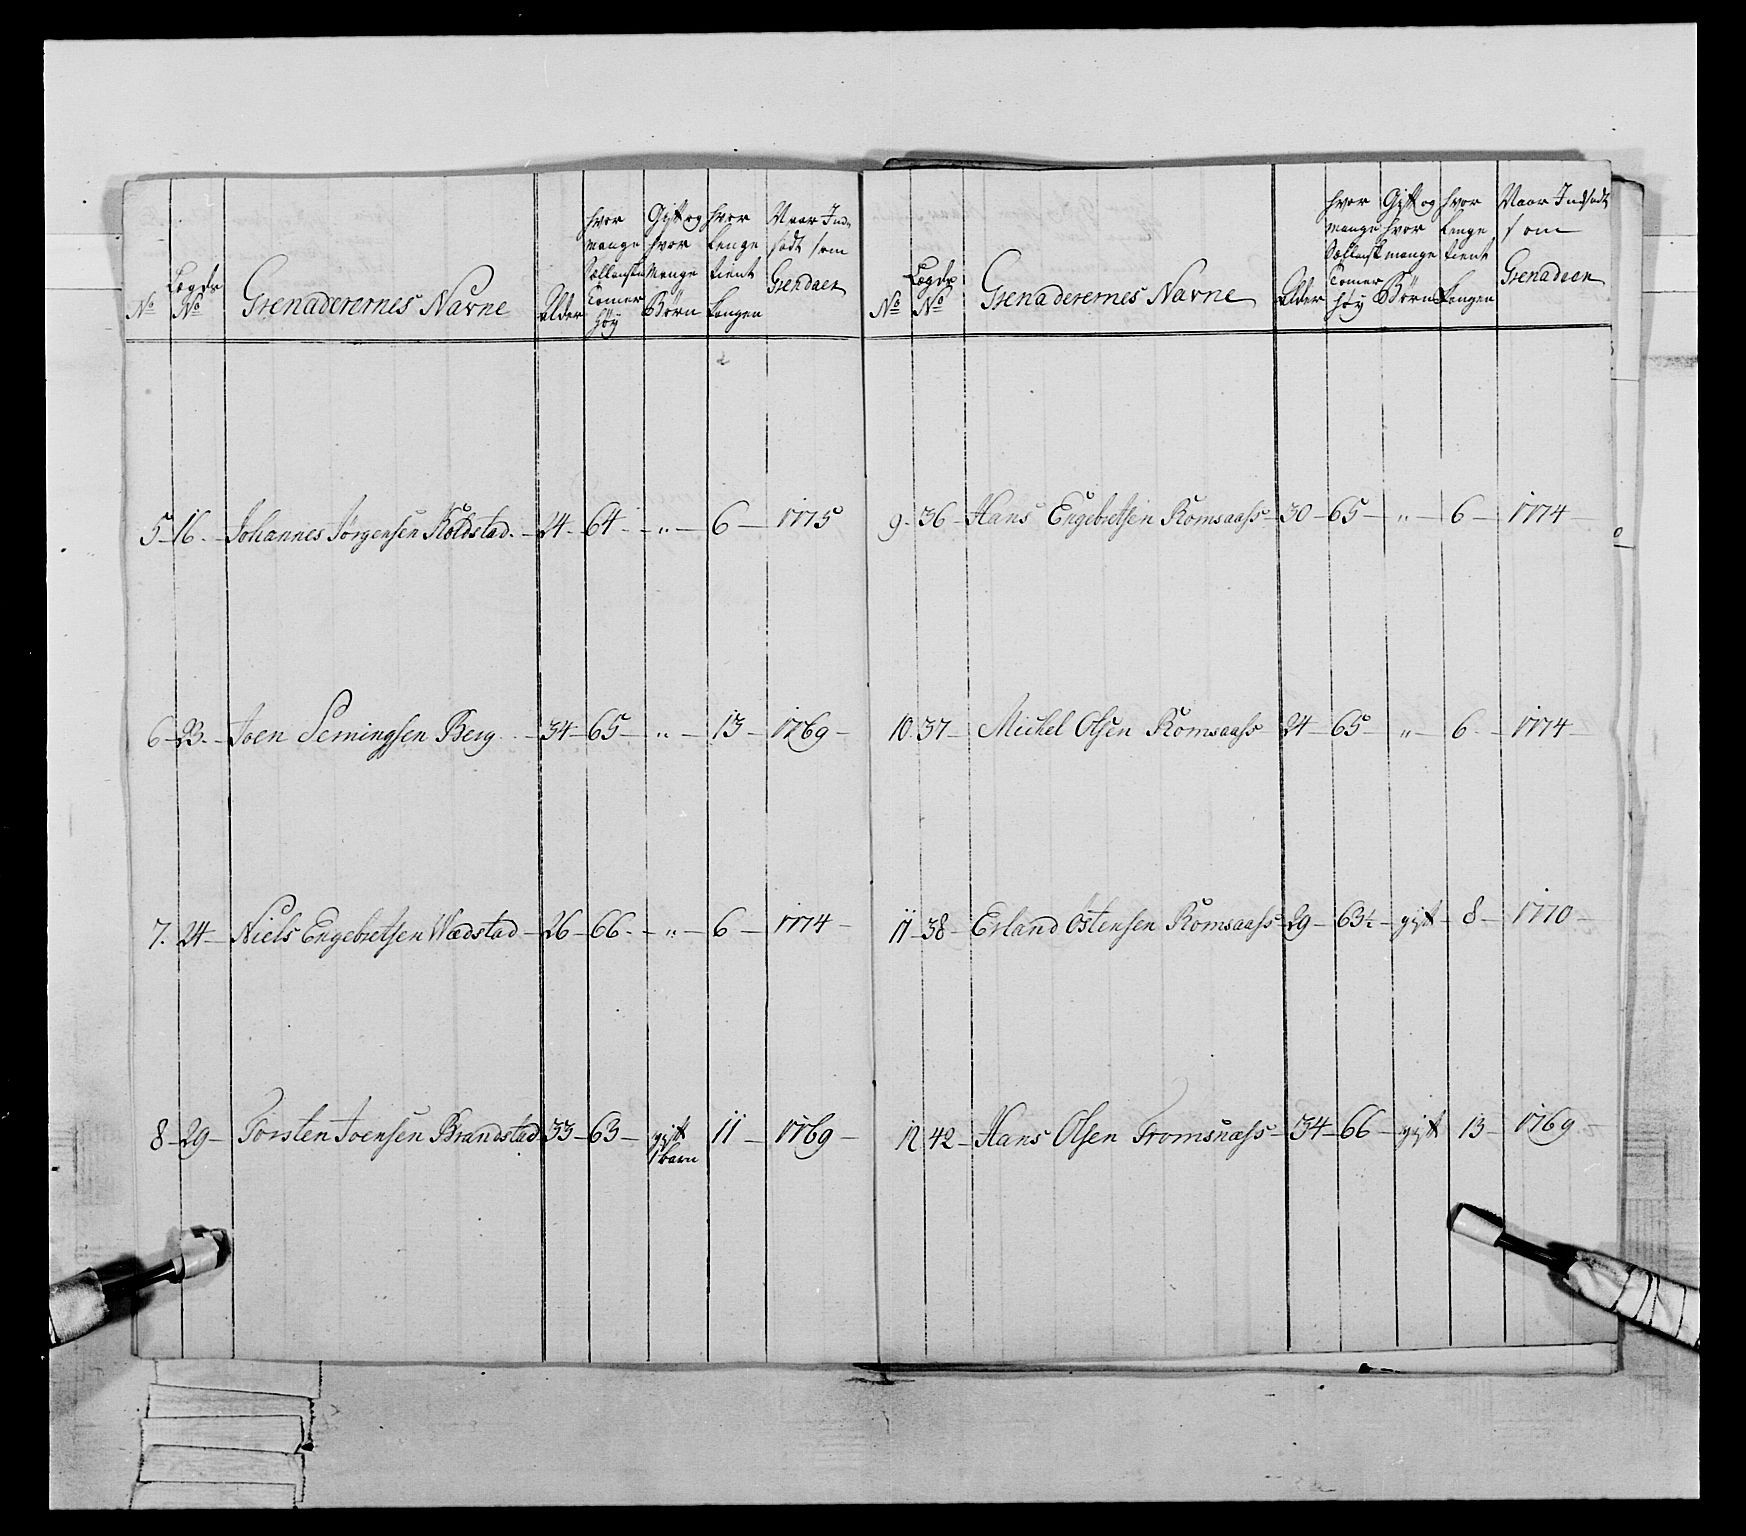 No
Legds No
Grenaderernes Navne
Alder
hvor mange Sællandske Tomer Høÿ
Gift og hvor mange Børn
hvor lenge tient
Naar Indsadt som
5 - 16 - Johannes Jørgensen Koldstad - 24 - 64 - " - 6 - 1775
6 - 23 - Joen Semingsen Berg - 34 - 65 - " - 13 - 1769 -
7. 24 - Niels Engebretsen Wædstad - 26 - 66 - " - 6 - 1774 -
8 - 29 - Torsten Joensen Brandstad 33 - 63 - gift 1 barn 11 - 1769 -
No
Legds No
Grenaderernes Navne
Alder
hvor mange Sællandsk Tomer Høÿ
Gift og hvor mange Børn
hvor lenge tient
Naar Indsadt som Grenadeer
9 - 36 - Hans Engebretsen Romsaass - 30 - 65 - " - 6 - 1774
10. 37 - Michel Olsen Romsaass 24 - 65 - " - 6 - 1774 -
11 - 38 - Erland Ostensen Romsaass - 29 - 63½ - gift - 8 - 1770 -
12 42 - Hans Olsen Tromsnæss - 34 - 66 - gift 13 - 1769 -